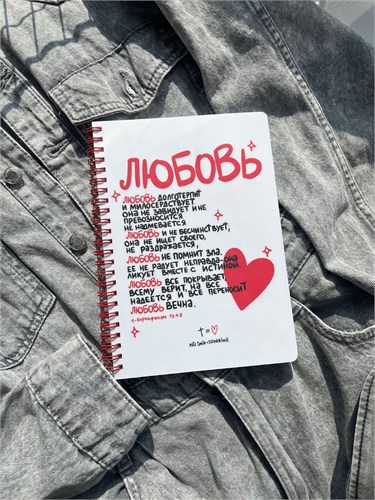 ЛЮБОВЬ
ЛЮБОВЬ ДОЛГОТЕРПИТ
И МИЛОСЕРДСТВУЕТ
ОНА НЕ ЗАВИДУЕТ И НЕ
ПРЕВОЗНОСИТСЯ
НЕ НАДМЕВАЕТСЯ
ЛЮБОВЬ И НЕ БЕСЧИНСТВУЕТ,
ОНА НЕ ИЩЕТ СВОЕГО,
НЕ РАЗДРАЖАЕТСЯ,
ЛЮБОВЬ НЕ ПОМНИТ ЗЛА,
ЕЕ НЕ РАДУЕТ НЕПРАВДА-ОНА
ЛИКУЕТ ВМЕСТЕ С ИСТИНОЙ.
ЛЮБОВЬ ВСЕ ПОКРЫВАЕТ,
ВСЕМУ ВЕРИТ, НА ВСЕ
НАДЕЕТСЯ И ВСЕ ПЕРЕНОСИТ
ЛЮБОВЬ ВЕЧНА.